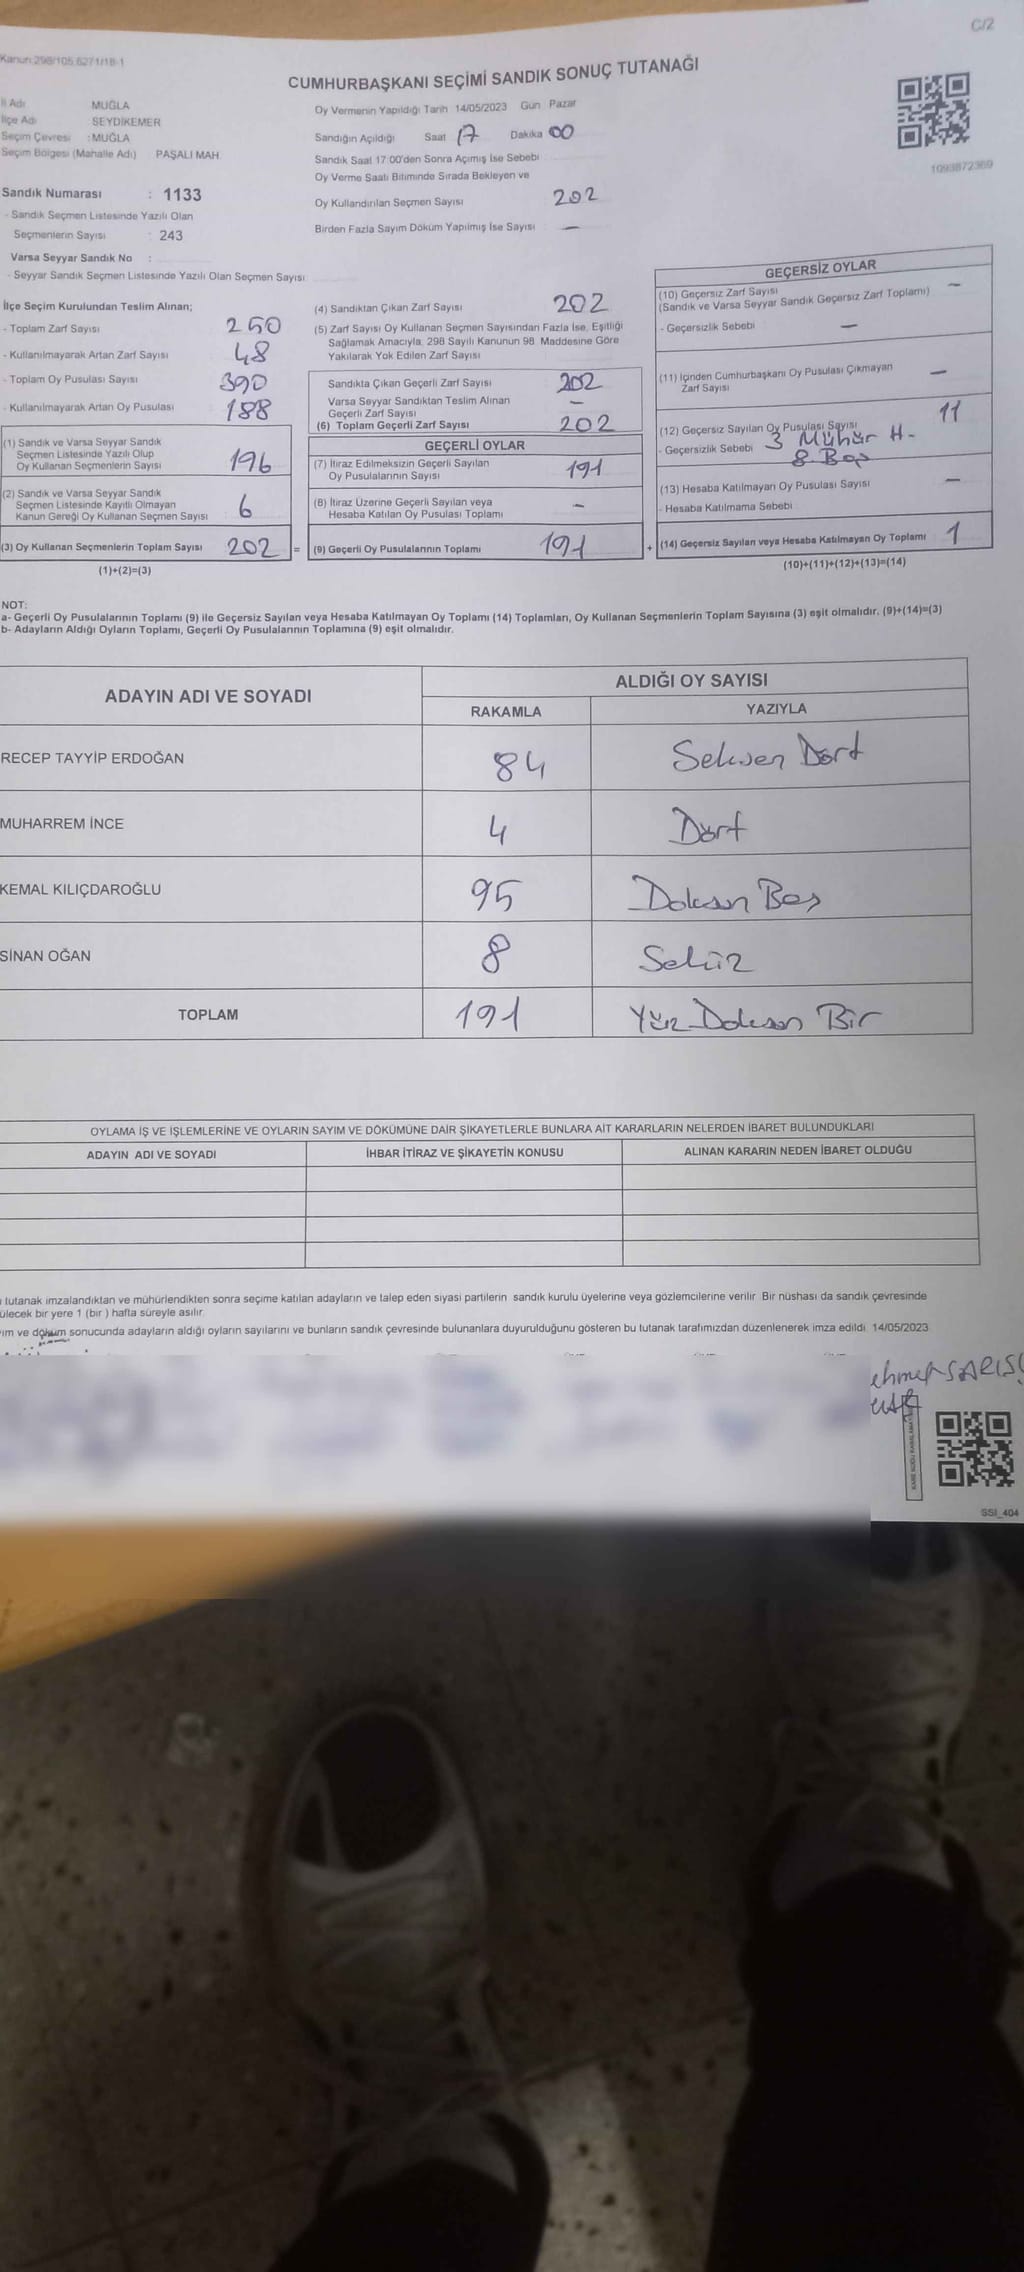 C/2
Kanun:298/105,6271/18-1
CUMHURBAŞKANI SEÇİMİ SANDIK SONUÇ TUTANAĞI
İl Adı MUĞLA
İlçe Adı SEYDİKEMER
Seçim Çevresi :MUĞLA
Seçim Bölgesi (Mahalle Adı) PAŞALI MAH.
Sandık Numarası : 1133
- Sandık Seçmen Listesinde Yazılı Olan
Seçmenlerin Sayısı : 243
Varsa Seyyar Sandık No :
- Seyyar Sandık Seçmen Listesinde Yazılı Olan Seçmen Sayısı
Oy Vermenin Yapıldığı Tarih 14/05/2023 Gün Pazar
Sandığın Açıldığı Saat 17 Dakika 00
Sandık Saat 17:00'den Sonra Açımış İse Sebebi
Oy Verme Saati Bitiminde Sırada Bekleyen ve
Oy Kullandırılan Seçmen Sayısı 202
Birden Fazla Sayım Döküm Yapılmış İse Sayısı : —
1093872369
İlçe Seçim Kurulundan Teslim Alınan;
- Toplam Zarf Sayısı 250
- Kullanılmayarak Artan Zarf Sayısı 48
- Toplam Oy Pusulası Sayısı 390
- Kullanılmayarak Artan Oy Pusulası 188
(1) Sandık ve Varsa Seyyar Sandık
Seçmen Listesinde Yazılı Olup
Oy Kullanan Seçmenlerin Sayısı 196
(2) Sandık ve Varsa Seyyar Sandık
Seçmen Listesinde Kayıtlı Olmayan
Kanun Gereği Oy Kullanan Seçmen Sayısı 6
(3) Oy Kullanan Seçmenlerin Toplam Sayısı 202 =
(1)+(2)=(3)
(4) Sandıktan Çıkan Zarf Sayısı 202
(5) Zarf Sayısı Oy Kullanan Seçmen Sayısından Fazla İse, Eşitliği
Sağlamak Amacıyla, 298 Sayılı Kanunun 98. Maddesine Göre
Yakılarak Yok Edilen Zarf Sayısı
Sandıkta Çıkan Geçerli Zarf Sayısı 202
Varsa Seyyar Sandıktan Teslim Alınan
Geçerli Zarf Sayısı —
(6) Toplam Geçerli Zarf Sayısı 202
GEÇERLİ OYLAR
(7) İtiraz Edilmeksizin Geçerli Sayılan
Oy Pusulalarının Sayısı 191
(8) İtiraz Üzerine Geçerli Sayılan veya
Hesaba Katılan Oy Pusulası Toplamı —
(9) Geçerli Oy Pusulalarının Toplamı 191 +
GEÇERSİZ OYLAR
(10) Geçersiz Zarf Sayısı —
(Sandık ve Varsa Seyyar Sandık Geçersiz Zarf Toplamı)
- Geçersizlik Sebebi —
(11) İçinden Cumhurbaşkanı Oy Pusulası Çıkmayan
Zarf Sayısı —
(12) Geçersiz Sayılan Oy Pusulası Sayısı 11
- Geçersizlik Sebebi 3 Mühür H.
8 Boş
(13) Hesaba Katılmayan Oy Pusulası Sayısı —
- Hesaba Katılmama Sebebi
(14) Geçersiz Sayılan veya Hesaba Katılmayan Oy Toplamı 1
(10)+(11)+(12)+(13)=(14)
NOT:
a- Geçerli Oy Pusulalarının Toplamı (9) ile Geçersiz Sayılan veya Hesaba Katılmayan Oy Toplamı (14) Toplamları, Oy Kullanan Seçmenlerin Toplam Sayısına (3) eşit olmalıdır. (9)+(14)=(3)
b- Adayların Aldığı Oyların Toplamı, Geçerli Oy Pusulalarının Toplamına (9) eşit olmalıdır.
ADAYIN ADI VE SOYADI
ALDIĞI OY SAYISI
RAKAMLA YAZIYLA
RECEP TAYYİP ERDOĞAN 84 Seksen Dört
MUHARREM İNCE 4 Dört
KEMAL KILIÇDAROĞLU 95 Doksan Beş
SİNAN OĞAN 8 Sekiz
TOPLAM 191 Yüz Doksan Bir
OYLAMA İŞ VE İŞLEMLERİNE VE OYLARIN SAYIM VE DÖKÜMÜNE DAİR ŞİKAYETLERLE BUNLARA AİT KARARLARIN NELERDEN İBARET BULUNDUKLARI
ADAYIN ADI VE SOYADI İHBAR İTİRAZ VE ŞİKAYETİN KONUSU ALINAN KARARIN NEDEN İBARET OLDUĞU
tutanak imzalandıktan ve mühürlendikten sonra seçime katılan adayların ve talep eden siyasi partilerin sandık kurulu üyelerine veya gözlemcilerine verilir. Bir nüshası da sandık çevresinde
ülecek bir yere 1 (bir ) hafta süreyle asılır.
ım ve döküm sonucunda adayların aldığı oyların sayılarını ve bunların sandık çevresinde bulunanlara duyurulduğunu gösteren bu tutanak tarafımızdan düzenlenerek imza edildi. 14/05/2023
ehmet SARIS
SSI_404